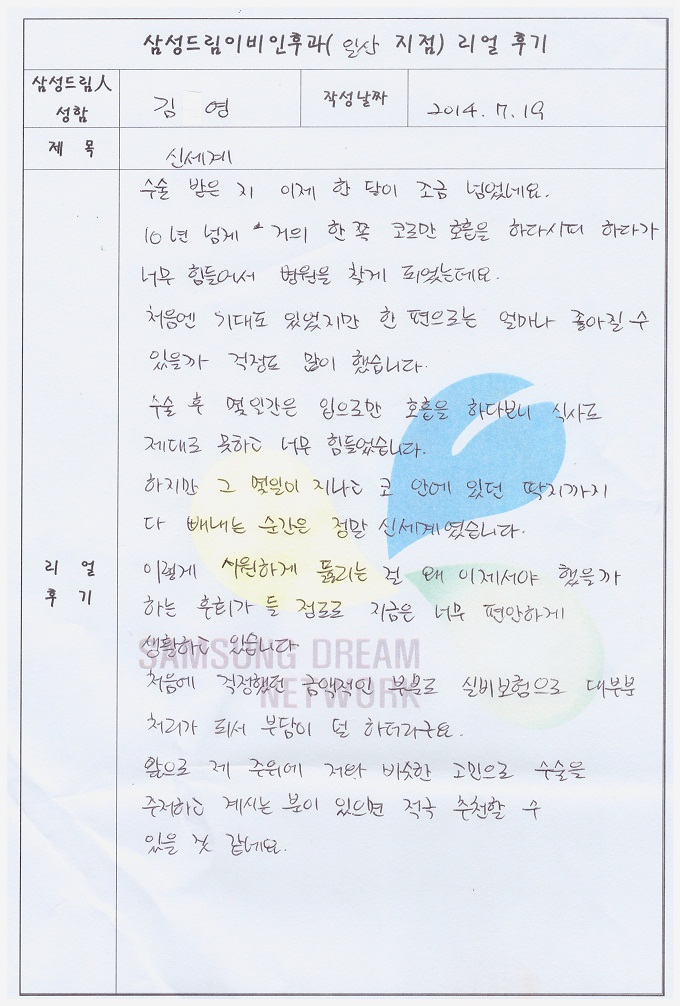 삼성드림이비인후과( 일산 지점) 리얼 후기
삼성드림人 성함
김 영
작성날짜
2014. 7. 19
제 목
신세계
리 얼 후 기
수술 받은 지 이제 한 달이 조금 넘었네요.
10년 넘게 거의 한 쪽 코로만 호흡을 하다시피 하다가
너무 힘들어서 병원을 찾게 되었는데요.
처음엔 기대도 있었지만 한 편으로는 얼마나 좋아질 수
있을까 걱정도 많이 했습니다.
수술 후 몇일간은 입으로만 호흡을 하다보니 식사도
제대로 못하고 너무 힘들었습니다.
하지만 그 몇일이 지나고 코 안에 있던 딱지까지
다 빼내는 순간은 정말 신세계였습니다.
이렇게 시원하게 뚫리는 걸 왜 이제서야 했을까
하는 후회가 들 정도로 지금은 너무 편안하게
생활하고 있습니다
처음에 걱정했던 금액적인 부분도 실비보험으로 대부분
처리가 되서 부담이 덜 하더라구요.
앞으로 제 주위에 저와 비슷한 고민으로 수술을
주저하고 계시는 분이 있으면 적극 추천할 수
있을 것 같네요.
SAMSUNG DREAM
NETWORK